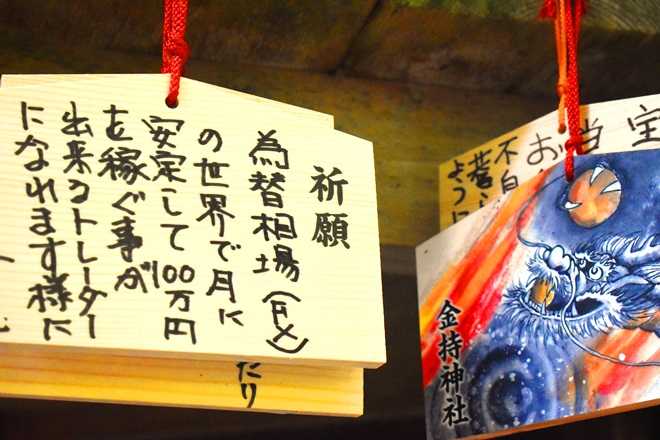 祈願
為替相場(FX)
の世界で月に
安定して100万円
を稼ぐ事が
出来るトレーダー
になれます様に
たり
宝
当
お
不自
ように
金持神社